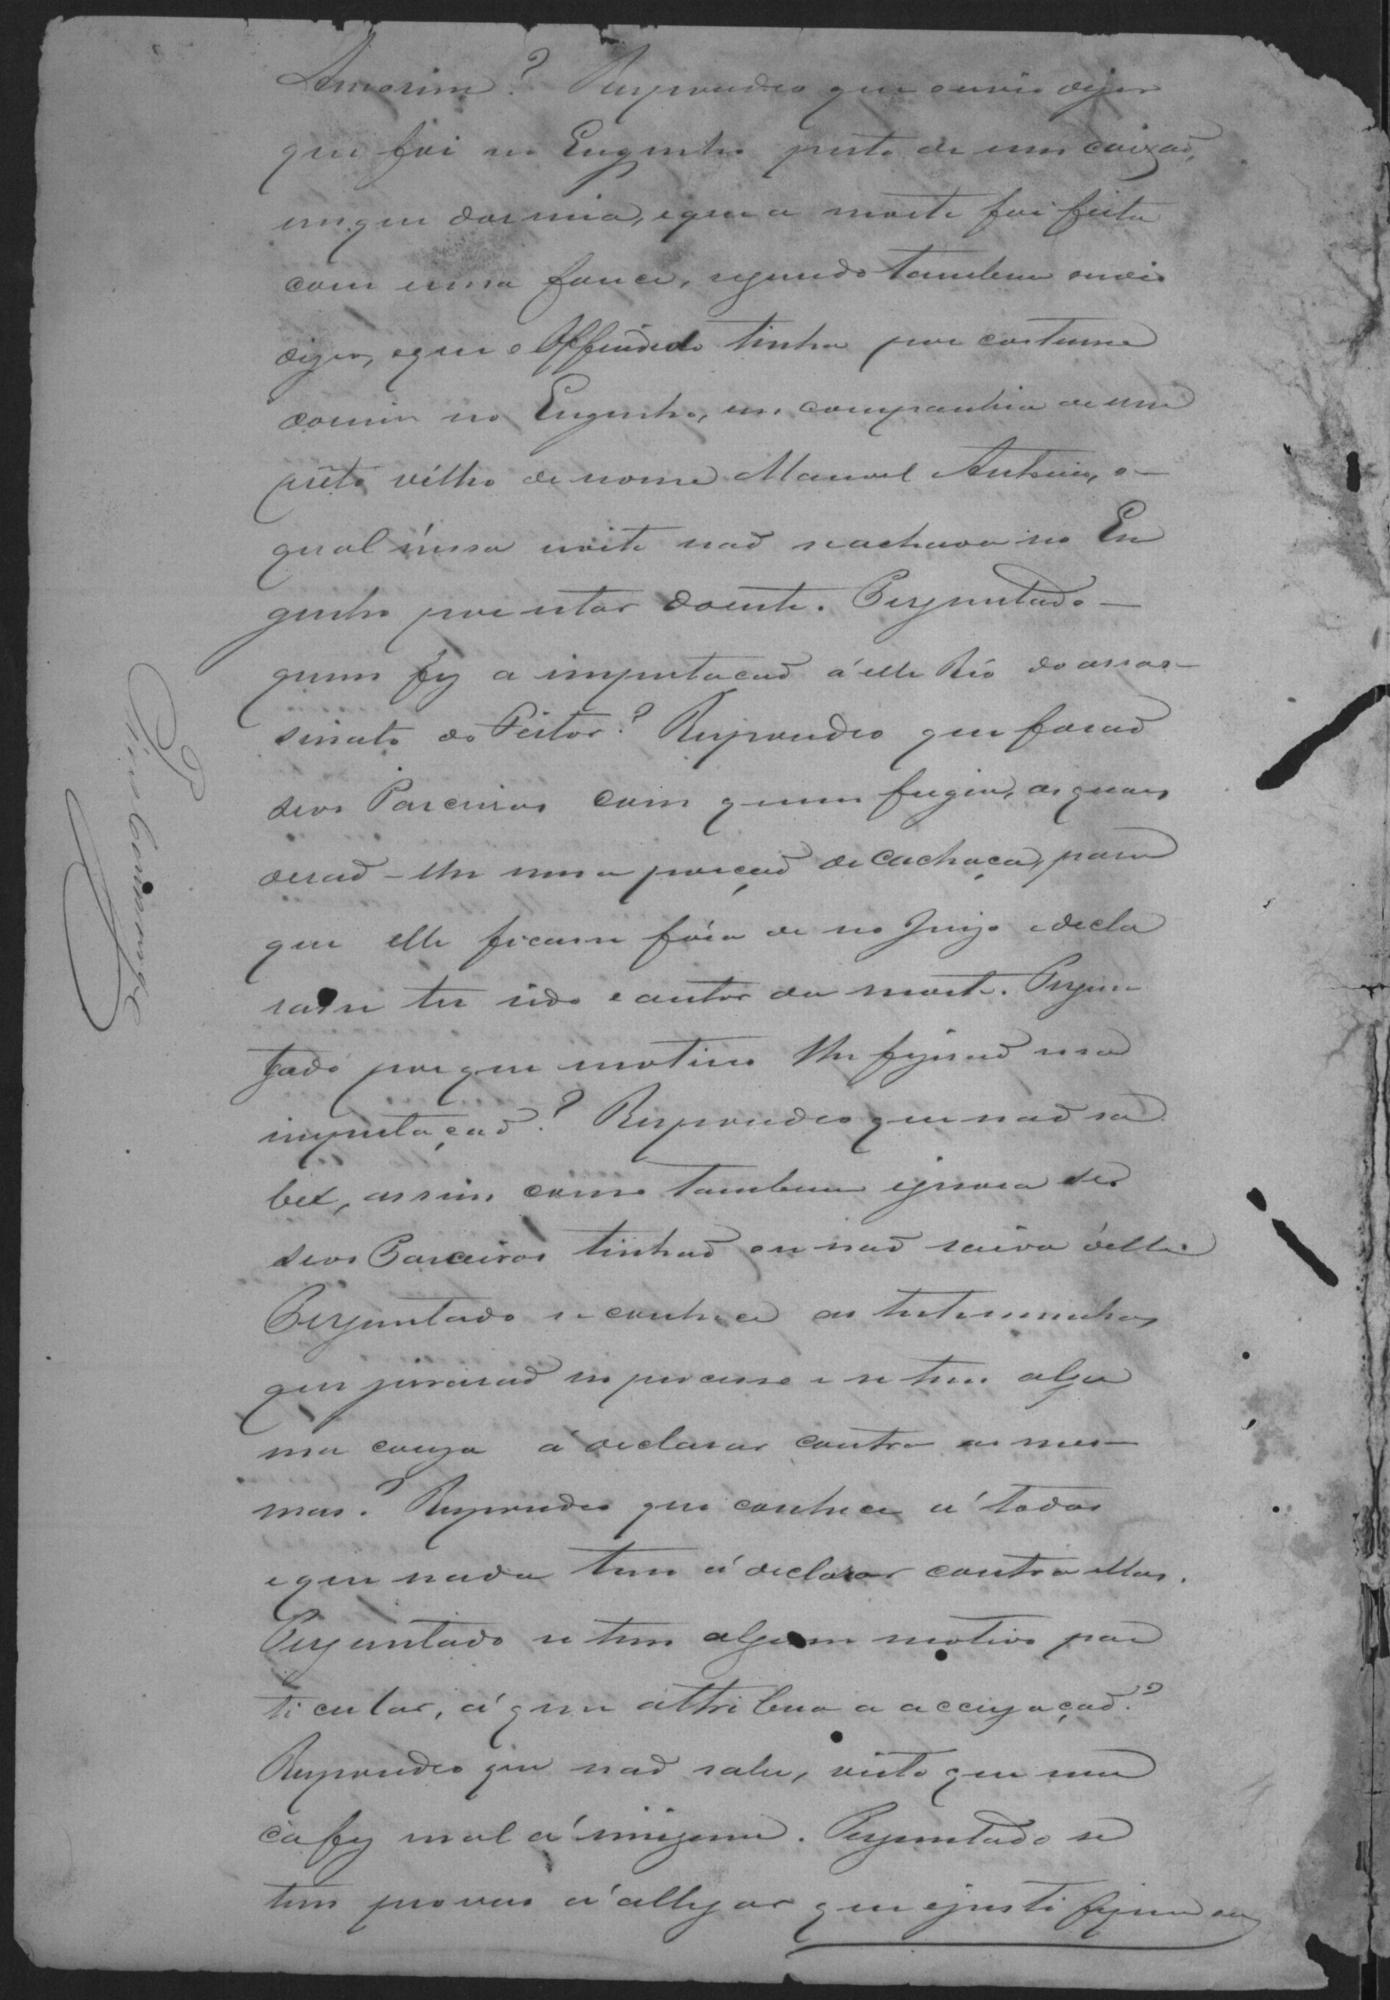 Amorim? Respondeo que ouvio dizer
que foi no Engenho perto de um caixaõ,
emque dormia, eque a morte foi feita
com uma fouce, segundo tambem ouvio
dizer, eque o Offendido tinha por costume
dormir no Engenho, em companhia de um
prêto vélho de nome Manoel Antonio, o
qual nessa noite naõ seachava no En
genho por estar doente. Perguntado
quem fez a imputacaõ á elle Réo do assas-
sinato do Feitor? Respondeo que foraõ
seos Parceiros com quem fugio, os quaes
deraõ-lhe uma porçaõ de cachaça, para
que elle ficasse fóra de seo Juizo edecla
rasse ter sido o autor da morte. Pergun
tado por que motivo lhe fizeraõ essa
imputaçaõ? Respondeo que naõ sa
be, assim como tambem ignora se
seos Parceiros tinhaõ ou naõ raiva d'elle
Perguntado se conhece as testemunhas
que juraraõ no processo e se tem algu
ma couza á declarar contra as mes-
mas? Respondeo que conhece á todas
eque nada tem á declarar contra ellas.
Perguntado se tem algum motivo par
ticular, á que attribua a accuzaçaõ?
Respondeo que naõ sabe, visto que nun
ca fez mal á ninguem. Perguntado se
tem provas á allegar que ojustifiquem ou